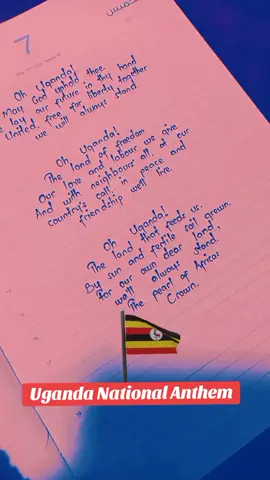 7
Oh Uganda!
May God uphold thee
We lay our future in thy hand
United, free for liberty together
we will always stand
Oh Uganda!
The land of freedom
Our love and labour we give
And with neighbours all, at our
country's call, in peace and
friendship we'll live.
Oh Uganda!
The land that feeds us.
By sun and fertile soil grown.
For our own dear land,
we'll always stand,
The pearl of Africas
Crown.
Uganda National Anthem